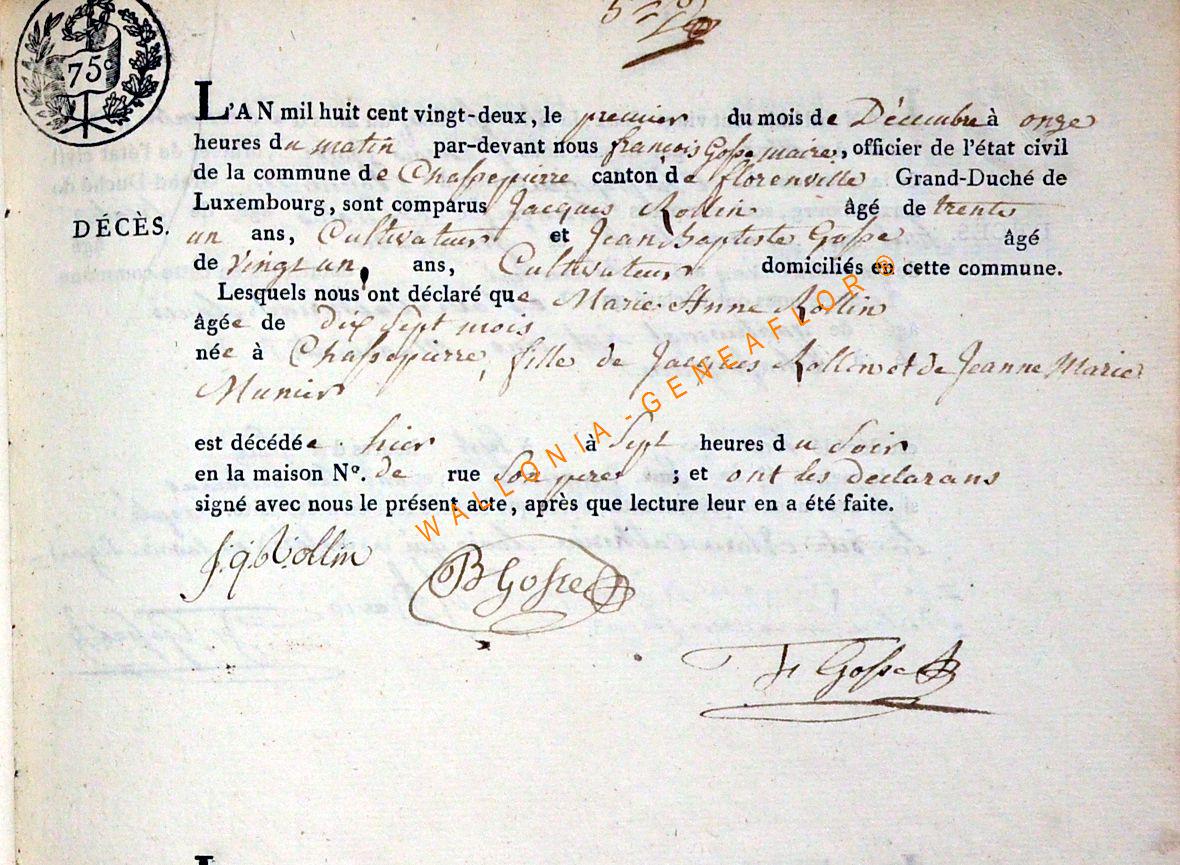 75c
L'AN mil huit cent vingt-deux, le premier du mois de Décembre à onze
heures du matin par-devant nous françois Gosse maire, officier de l'état civil
de la commune de Chassepierre canton de florenville Grand-Duché de
Luxembourg, sont comparus Jacques Rollin âgé de trente
DÉCÈS.
un ans, Cultivateur et Jean Baptiste Gosse âgé
de vingt un, ans, Cultivateur domiciliés en cette commune.
Lesquels nous ont déclaré que Marie Anne Rollin
âgée de dix Sept mois
née à Chassepierre, fille de Jacques Rollin et de Jeanne Marie
Munier
est décédée hier à Sept heures du Soir
en la maison No. de rue Son pere ; et ont les declarans
signé avec nous le présent acte, après que lecture leur en a été faite.
J. q. Rollin
JB Gosse
fs Gosse
WALLONIA-GENEAFLOR®